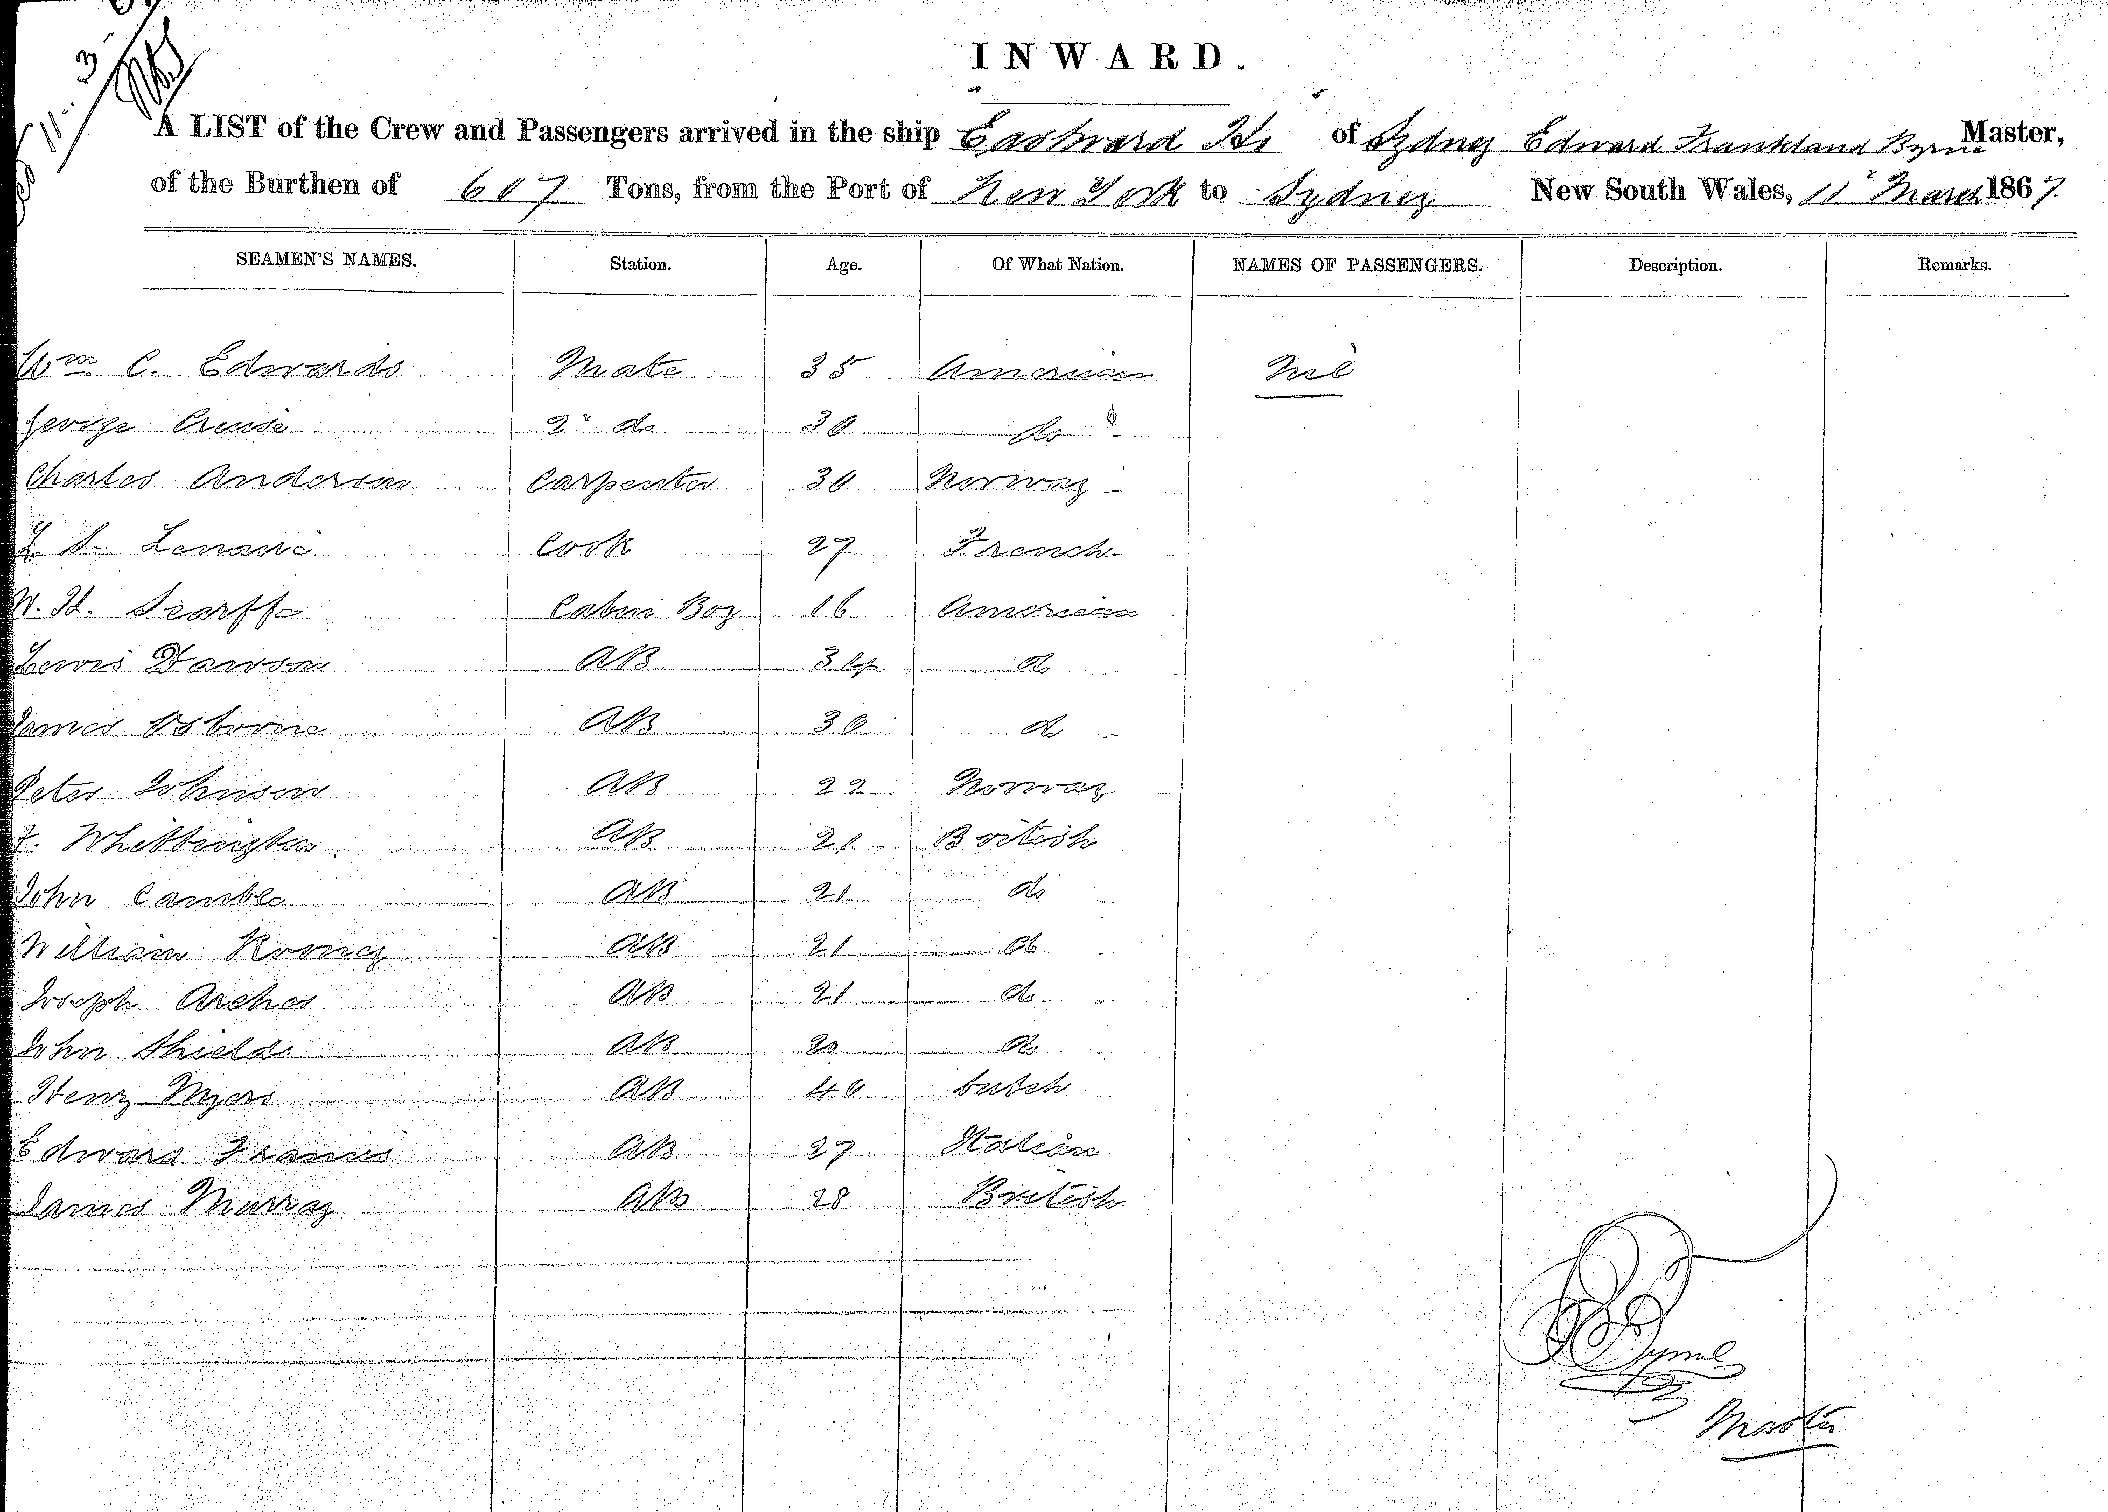 11-3-
INWARD.
A LIST of the Crew and Passengers arrived in the ship Eastward Ho of Sydney Edward Frankland Byrne Master,
of the Burthen of 607 Tons, from the Port of New York to Sydney New South Wales, 11 March 1867.
SEAMEN'S NAMES. Station. Age. Of What Nation. NAMES OF PASSENGERS. Description. Remarks.
Wm C. Edwards Mate 35 American Nil
George Cruise 2d do 30 do
Charles Anderson Carpenter 30 Norway
Cook 27 French
W. H. Scarffe Cabin Boy 16 American
Lewis Dawson AB 34 do
James Osborne AB 30 do
Peter Johnson AB 22 Norway
Whittington AB 21 British
John Camble AB 21 do
William Rooney AB 21 do
Joseph Archer AB 21 do
John Shields AB 20 do
Henry Myers AB 40 Dutch
Edward Francis AB 27 Italian
James Murray AB 28 British
Byrne
Master